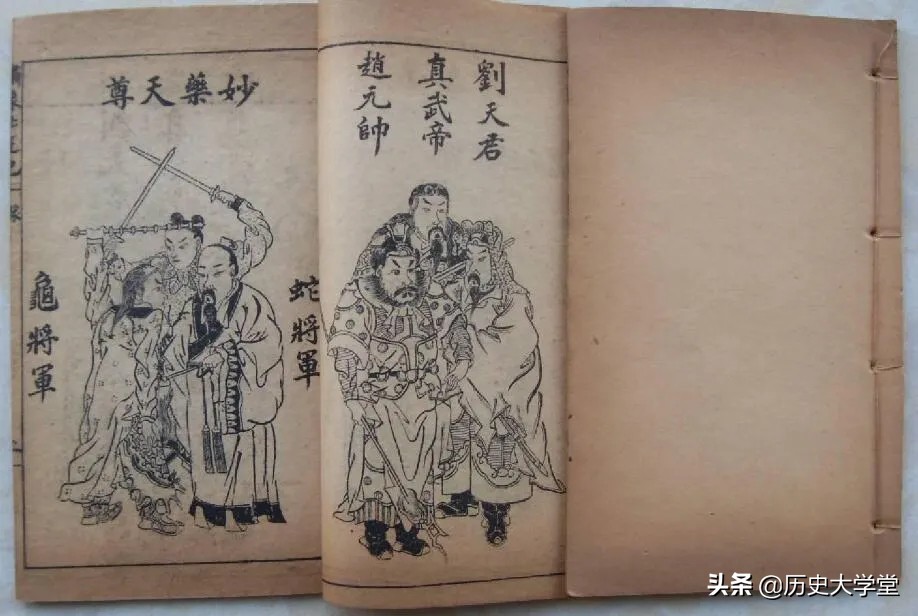 劉天君
真武帝
趙元帥
妙藥天尊
蛇將軍
龜將軍
头条 @历史大学堂